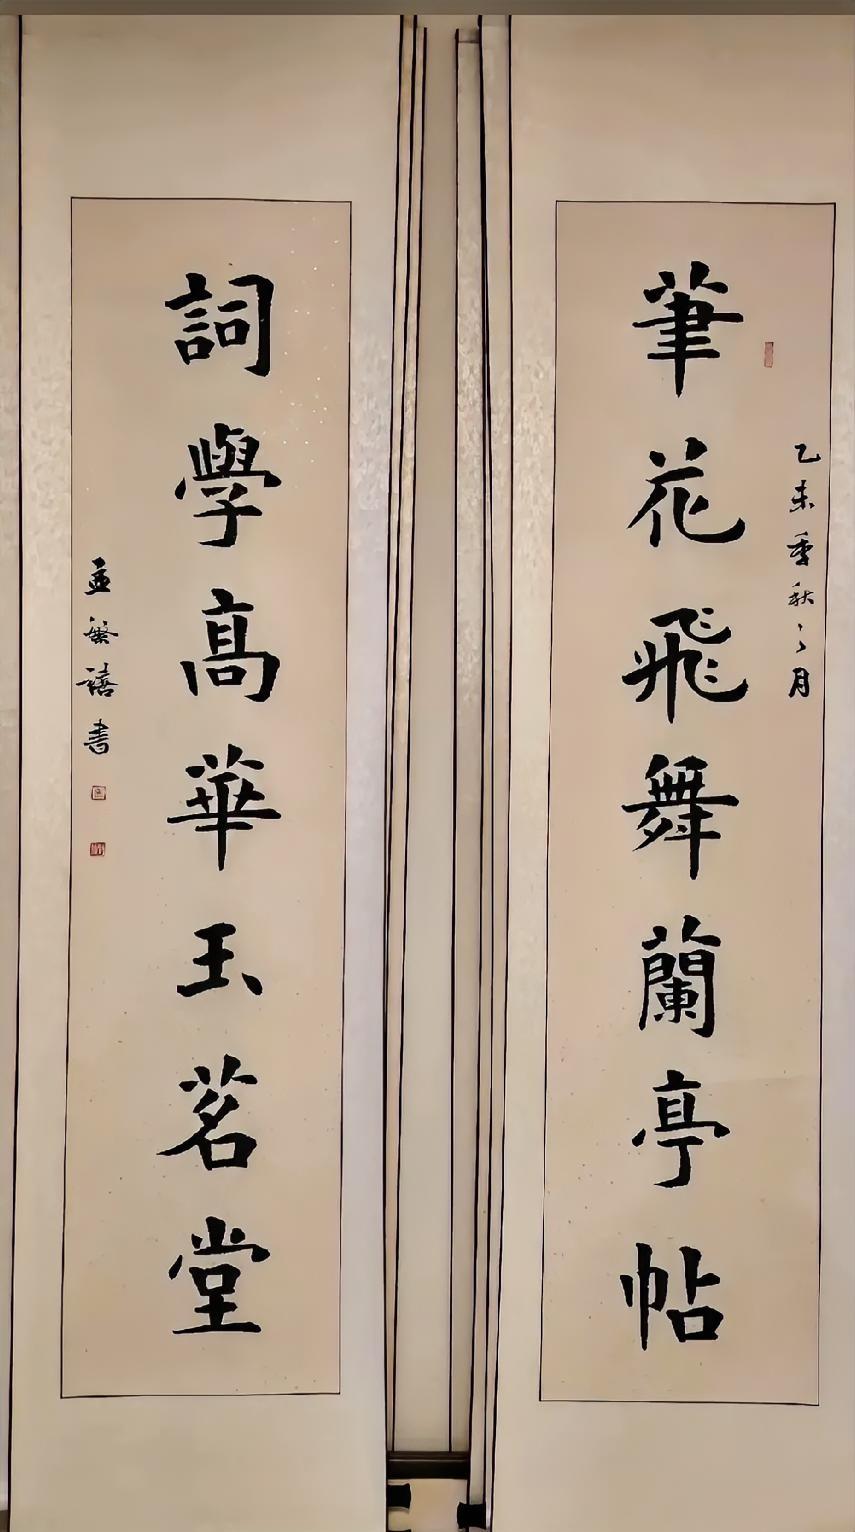 筆花飛舞蘭亭帖
乙未季秋之月
詞學高華玉茗堂
孟繁禧書